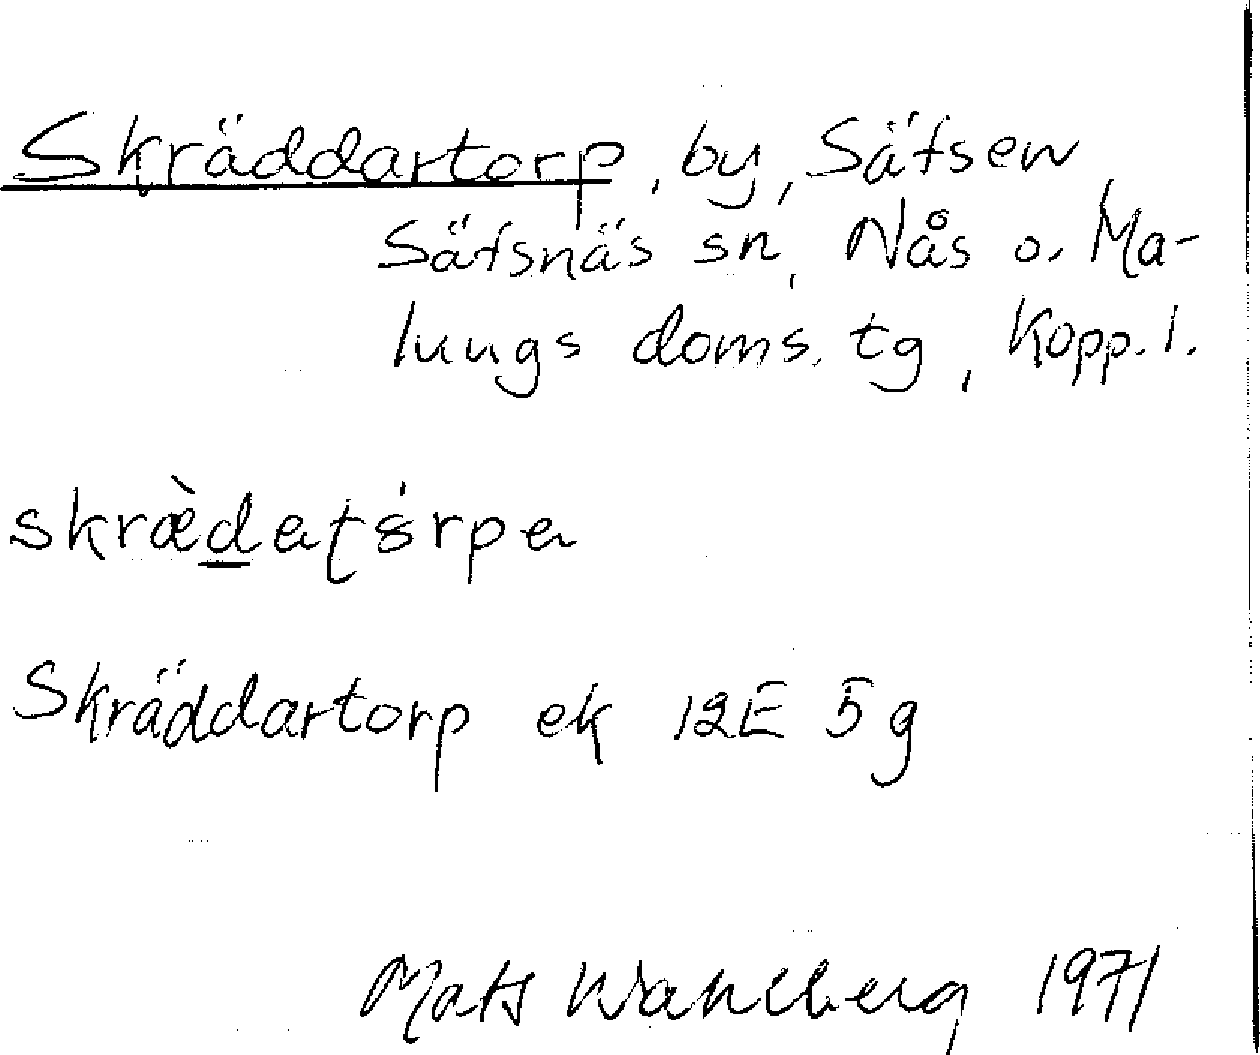 Skräddartorp, by, Säfsen,
Säfsnäs sn, Nås o. Ma-
lungs doms. tg, Kopp. l.
Skräddartorp ek 12E 5g
Mats Wahlberg 1971